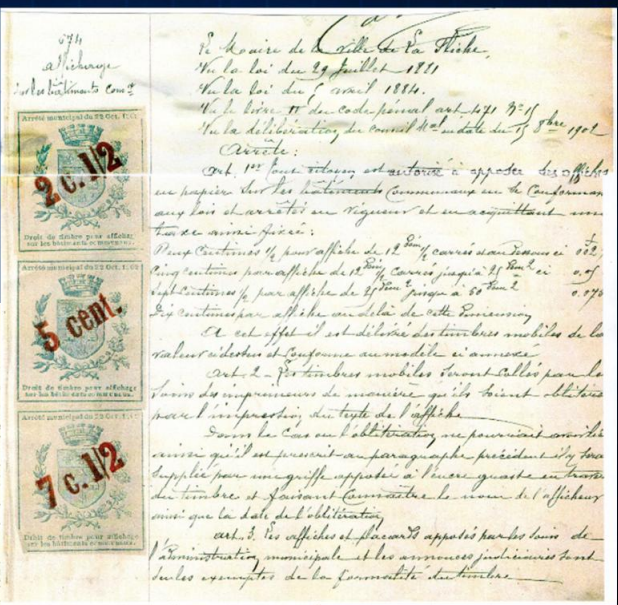 674
affichage
sur les bâtiments com^x
Arrêté municipal du 22 Oct. 1902
2 c. 1/2
Droit de timbre pour affichage
sur les bâtiments communaux.
Arrêté municipal du 22 Oct. 1902
5 cent.
Droit de timbre pour affichage
sur les bâtiments communaux.
Arrêté municipal du 22 Oct. 1902
7 c. 1/2
Droit de timbre pour affichage
sur les bâtiments communaux.
Le Maire de la ville de La Flèche,
Vu la loi du 29 Juillet 1881
Vu la loi du 5 avril 1884.
Vu le livre IV du code pénal art 471 N° 15
Vu la délibération du Conseil M^al en date du 15 8^bre 1902
Arrête:
Art. 1^er Tout citoyen est autorisé à apposer des affiches
en papier sur les bâtiments Communaux en se Conformant
aux lois et arrêtés en vigueur et en acquittant une
taxe ainsi fixée:
Deux Centimes 1/2 pour affiche de 12 carrés et au dessous ci
Cinq centimes par affiche de 12 1/2 carrés jusqu'à 25 ci 0.05
Sept Centimes 1/2 par affiche de 25 jusqu'à 50
Dix centimes par affiche au delà de cette Dimension
A cet effet il est délivré des timbres mobiles de la
valeur ci dessus et conforme au modèle ci annexé
Art. 2 - Les timbres mobiles seront collés par les
soins des imprimeurs de manière qu'ils soient oblitérés
par l'impression du texte de l'affiche
Dans le cas où l'oblitération ne pourrait avoir lieu
ainsi qu'il est prescrit au paragraphe précédent il y sera
suppléé par une griffe apposée à l'encre grasse en travers
du timbre et faisant connaître le nom de l'afficheur
ainsi que la date de l'oblitération
Art. 3. Les affiches et placards apposés par les soins de
l'administration municipale et les annonces judiciaires sont
seules exemptes de la formalité du timbre